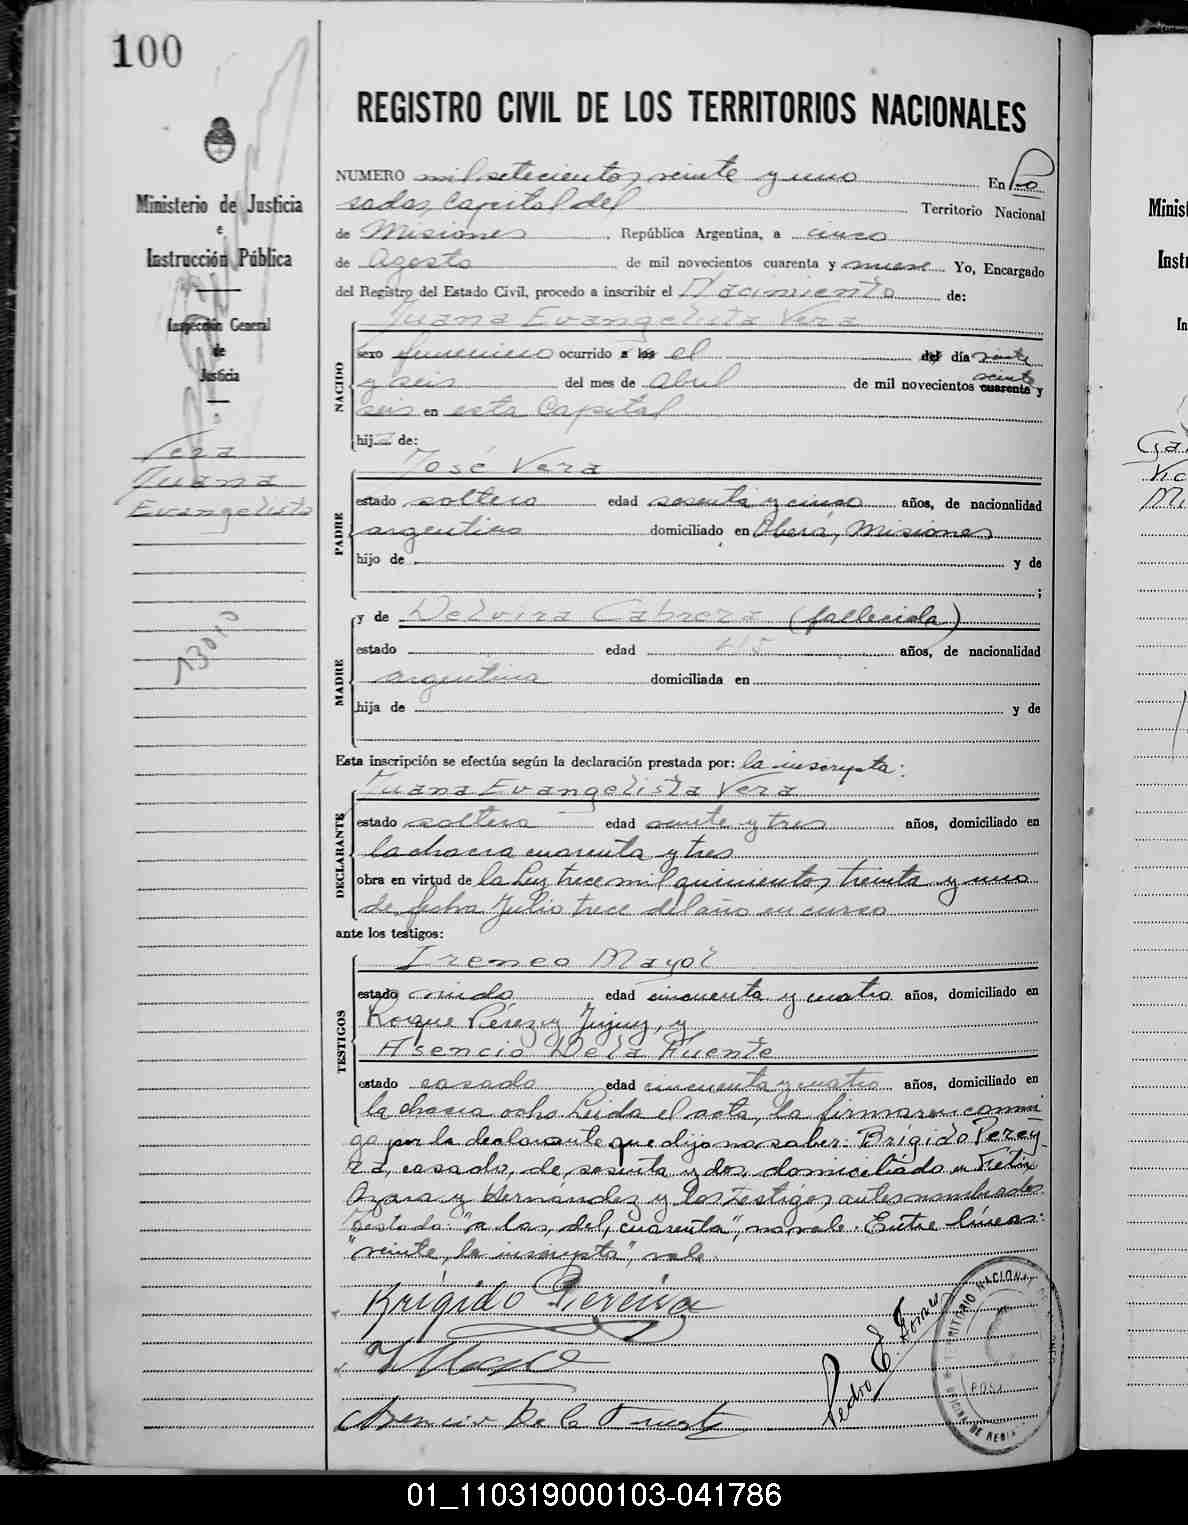 100
REGISTRO CIVIL DE LOS TERRITORIOS NACIONALES
Ministerio de Justicia
e
Instrucción Pública
Inspección General
de
Justicia
Vera
Juana
Evangelista
13010
NUMERO mil setecientos veinte y uno En Po
sadas, Capital del Territorio Nacional
de Misiones República Argentina, a cinco
de Agosto de mil novecientos cuarenta y nueve Yo, Encargado
del Registro del Estado Civil, procedo a inscribir el Nacimiento de:
NACIDO
Juana Evangelista Vera
sexo femenino ocurrido a las el del día veinte
y seis del mes de Abril de mil novecientos cuarenta veinte y
seis en esta Capital
hija de:
PADRE
José Vera
estado soltero edad sesenta y cinco años, de nacionalidad
argentino domiciliado en Oberá, Misiones
hijo de y de
;
MADRE
y de Delvira Cabrera (fallecida)
estado edad 45 años, de nacionalidad
argentina domiciliada en
hija de y de
Esta inscripción se efectúa según la declaración prestada por: la inscripta:
DECLARANTE
Juana Evangelista Vera
estado soltera edad veinte y tres años, domiciliado en
la chacra cuarenta y tres
obra en virtud de la Ley trece mil quinientos treinta y uno
de fecha Julio trece del año en curso
ante los testigos:
TESTIGOS
Ireneo Mayol
estado viudo edad cincuenta y cuatro años, domiciliado en
Roque Pérez y Jujuy, y
Asencio De la Fuente
estado casado edad cincuenta y cuatro años, domiciliado en
la chacra ocho. Leida el acta, la firmaron conmi
go por la declarante que dijo no saber: Brígido Perey
ra, casado, de sesenta y dos, domiciliado en Félix
Azara y Hernandez y los testigos antes nombrados.
Testado: "a las, del, cuarenta", no vale. Entre líneas:
"veinte, la inscripta", vale.
Brígido Pereira
Asencio De la Fuente
Pedro E.
TERRITORIO NACIONAL DE MISIONES
OFICINA DE REGISTRO
01_110319000103-041786